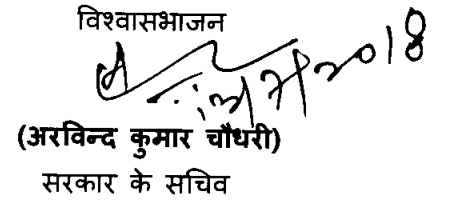 विश्वासभाजन
2018
(अरविन्द कुमार चौधरी)
सरकार के सचिव